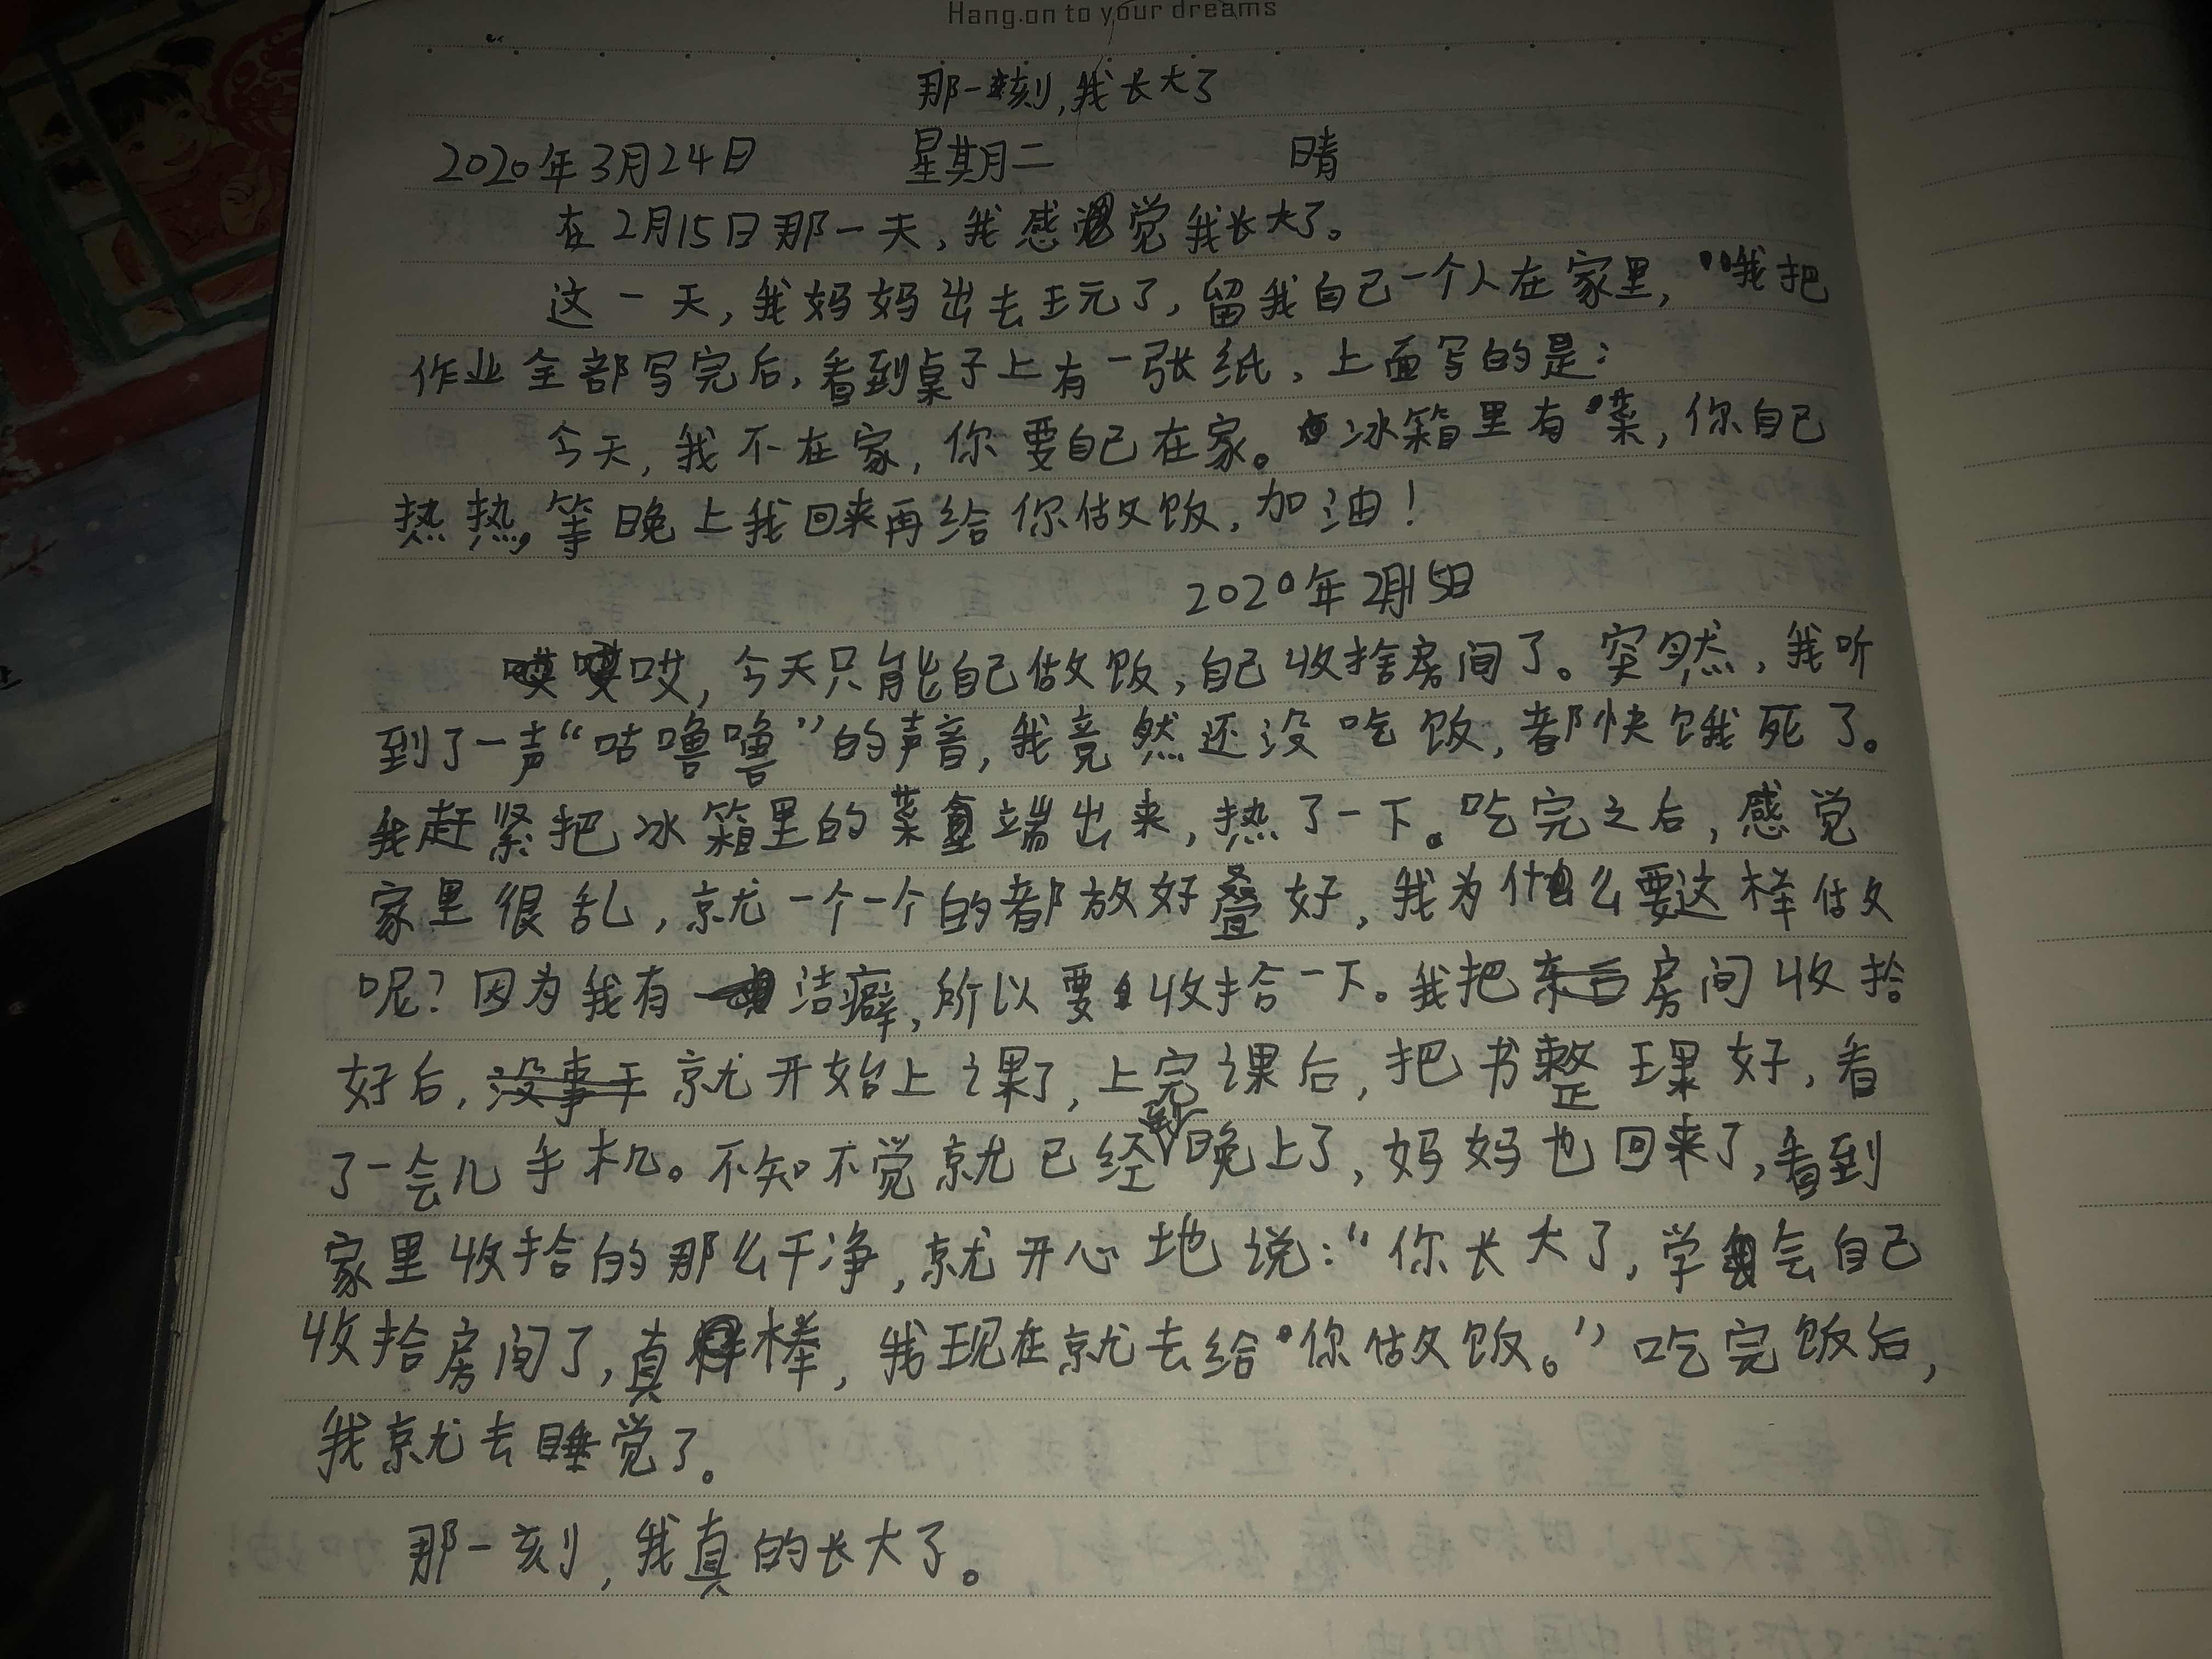 Hang on to your dreams
那一刻,我长大了
2020年3月24日 星期二 晴
在2月15日那一天,我感觉我长大了。
这一天,我妈妈出去玩了,留我自己一个人在家里,我把
作业全部写完后,看到桌子上有一张纸,上面写的是:
今天,我不在家,你要自己在家。冰箱里有菜,你自己
热热,等晚上我回来再给你做饭,加油!
2020年2月15日
哎,今天只能自己做饭,自己收拾房间了。突然,我听
到了一声“咕噜噜”的声音,我竟然还没吃饭,都快饿死了。
我赶紧把冰箱里的菜端出来,热了一下。吃完之后,感觉
家里很乱,就一个一个的都放好叠好,我为什么要这样做
呢?因为我有洁癖,所以要收拾一下。我把房间收拾
好后,就开始上课了,上完课后,把书整理好,看
了一会儿手机。不知不觉就已经到晚上了,妈妈也回来了,看到
家里收拾的那么干净,就开心地说:“你长大了,学会自己
收拾房间了,真棒,我现在就去给你做饭。”吃完饭后,
我就去睡觉了。
那一刻,我真的长大了。